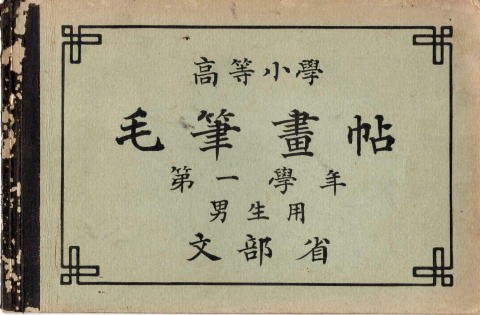 高等小學
毛筆畫帖
第一學年
男生用
文部省